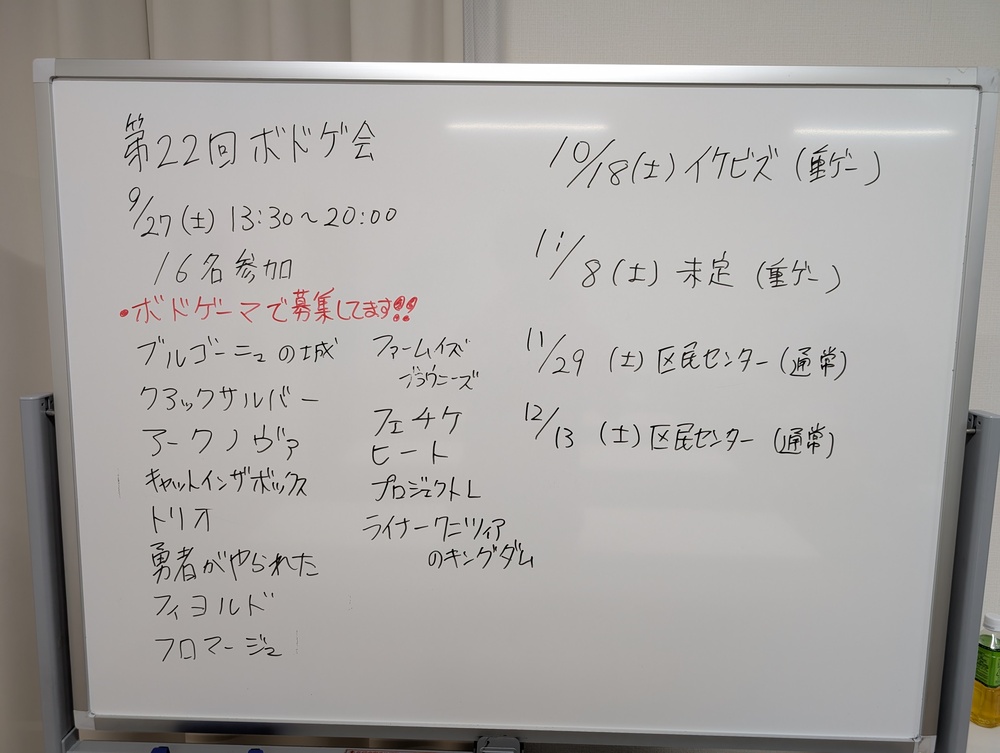 第22回ボドゲ会
9/27(土) 13:30～20:00
16名参加
・ボドゲーマで募集してます!!
ブルゴーニュの城
クアックサルバー
アークノヴァ
キャットインザボックス
トリオ
勇者がやられた
フィヨルド
フロマージュ
ファームイズ
ブラウニーズ
フェチケ
ヒート
プロジェクトL
ライナークニツィア
のキングダム
10/18(土)イケビズ(重ゲー)
11/8(土) 未定 (重ゲー)
11/29 (土) 区民センター(通常)
12/13 (土) 区民センター (通常)